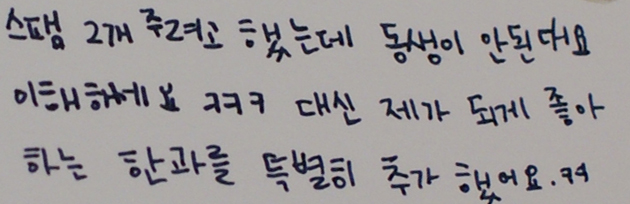 스팸 2개 주려고 했는데 동생이 안된대요
이해하세요 ㅋㅋㅋ 대신 제가 되게 좋아
하는 한과를 특별히 추가 했어요. ㅋㅋ